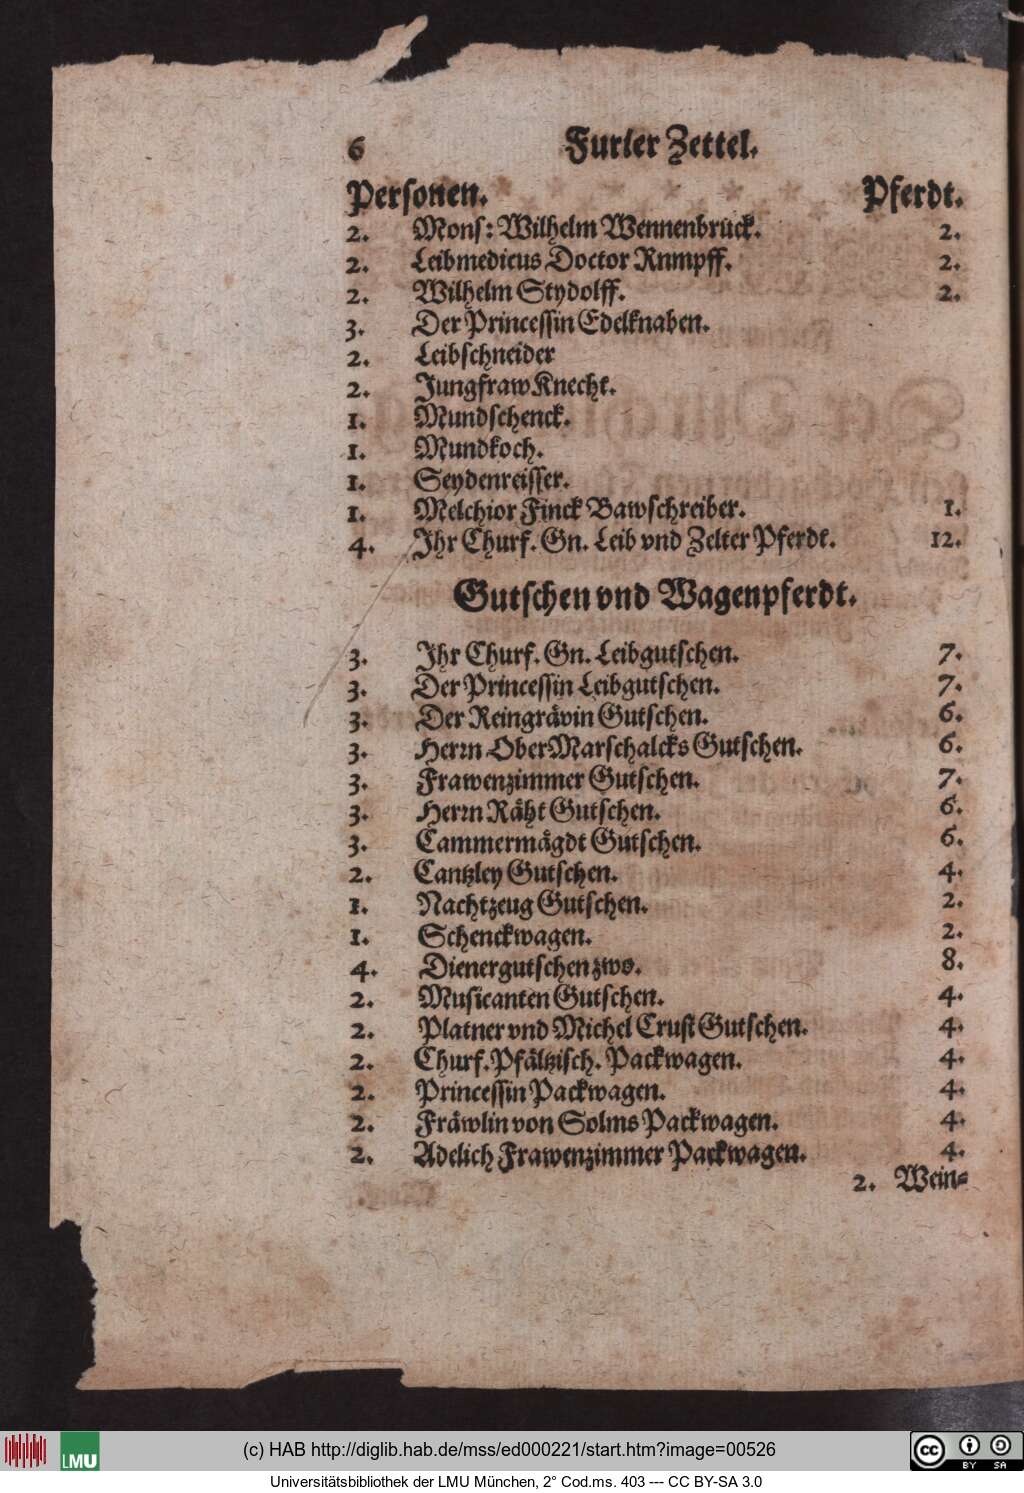 6 Furier Zettel.
Personen. Pferdt.
2. Mons: Wilhelm Wennenbruck. 2.
2. Leibmedicus Doctor Rnmpff. 2.
2. Wilhelm Stydolff. 2.
3. Der Princessin Edelknaben.
2. Leibschneider
2. Jungfraw Knecht.
1. Mundschenck.
1. Mundkoch.
1. Seydenreisser.
1. Melchior Finck Bawschreiber. 1.
4. Ihr Churf. Gn. Leib vnd Zelter Pferdt. 12.
Gutschen vnd Wagenpferdt.
3. Ihr Churf. Gn. Leibgutschen. 7.
3. Der Princessin Leibgutschen. 7.
3. Der Reingrävin Gutschen. 6.
3. Herrn OberMarschalcks Gutschen. 6.
3. Frawenzimmer Gutschen. 7.
3. Herrn Räht Gutschen. 6.
3. Cammermägdt Gutschen. 6.
2. Cantzley Gutschen. 4.
1. Nachtzeug Gutschen. 2.
1. Schenckwagen. 2.
4. Dienergutschen zwo. 8.
2. Musicanten Gutschen. 4.
2. Platner vnd Michel Crust Gutschen. 4.
2. Churf. Pfältzisch. Packwagen. 4.
2. Princessin Packwagen. 4.
2. Fräwlin von Solms Packwagen. 4.
2. Adelich Frawenzimmer Packwagen. 4.
2. Wein-
LMU
(c) HAB http://diglib.hab.de/mss/ed000221/start.htm?image=00526
cc BY SA
Universitätsbibliothek der LMU München, 2° Cod.ms. 403 --- CC BY-SA 3.0